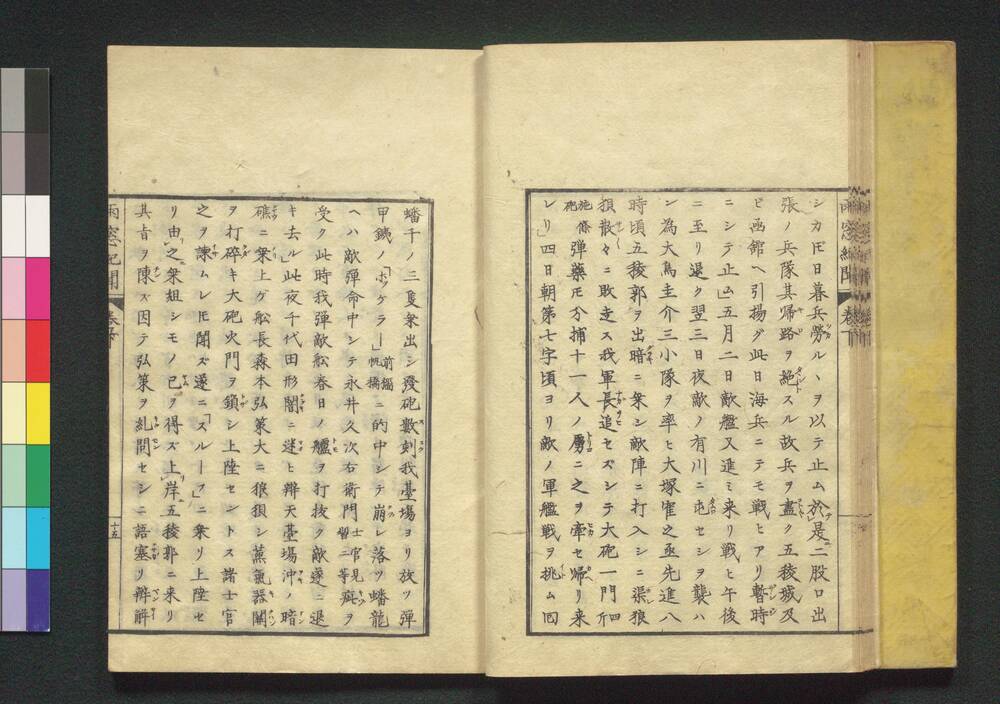 シカドモ日暮兵労ルヽヲ以テ止ム於是二股口出
張ノ兵隊其帰路ヲ絶スル故兵ヲ盡ク五稜城及
ビ函館ヘ引揚グ此日海兵ニテモ戦ヒアリ暫時
ニシテ止ム五月二日敵艦又進ミ来リ戦ヒ午後
ニ至リ退ク翌三日夜敵ノ有川ニ屯セシヲ襲ハ
ン為大鳥圭介三小隊ヲ率ヒ大塚寉之丞先進八
時頃五稜郭ヲ出暗ニ乗シ敵陣ニ打入シニ渠狼
狽散々ニ敗走ス我軍長追セズシテ大砲一門四斤
施條砲弾薬ドモ分捕十一人ノ虜ニ之ヲ牽セ帰リ来
レリ四日朝第七字頃ヨリ敵ノ軍艦戦ヲ挑ム回
蟠千ノ三隻乗出シ発砲数刻我臺場ヨリ放ツ弾
甲鉄ノ「ボツケラー」前鐇帆橋ニ的中シテ崩レ落ツ蟠龍
ヘハ敵弾命中シテ永井久次右衛門士官見習ニ等疵ヲ
受ク此時我弾敵船春日ノ艫ヲ打抜ク敵遂ニ退
キ去ル此夜千代田形闇ニ迷ヒ辨天臺場沖ノ暗
礁ニ乗上ゲ舩長森本弘策大ニ狼狽シ蒸氣器関
ヲ打碎キ大砲火門ヲ鎖シ上陸セントス諸士官
之ヲ諫ムレドモ聞ズ遂ニ「スループ」ニ乗リ上陸セ
リ由之乗組シモノ已ヲ得ズ上岸五稜郭ニ来リ
其旨ヲ陳ズ因テ弘策ヲ糺問セシニ語塞リ辨解
雨窓紀聞
巻下
十五